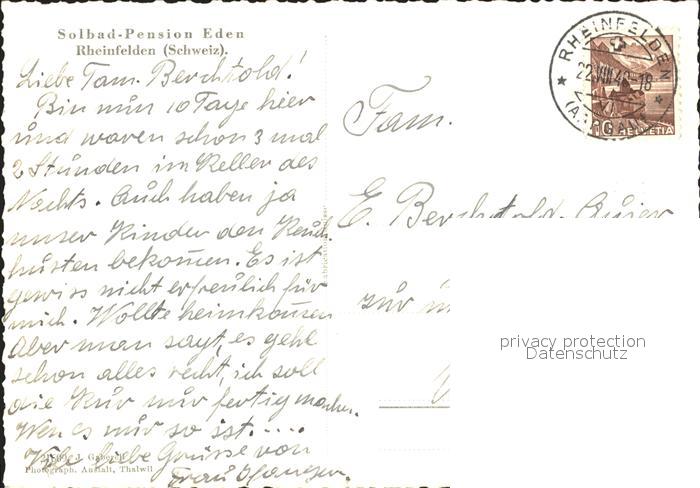 Solbad-Pension Eden
Rheinfelden (Schweiz).
Liebe Fam. Berchtold!
Bin nun 10 Tage hier
und waren schon 3 mal
2 Stunden im Keller des
Nachts. Auch haben ja
unser Kinder den Keuch-
husten bekommen. Es ist
gewiss nicht erfreulich für
mich. Wollte heimkommen
Aber man sagt, es gehl
schon alles recht, ich soll
die Kur nur fertig machen.
Wen es mir so ist....
Viele liebe Grüsse von
Frau
J. Gaberell
Photograph. Anstalt, Thalwil
Fam.
E. Berchtold
zur
RHEINFELDEN
22.VIII.4 -18
(AARGAU)
10 HELVETIA
privacy protection
Datenschutz